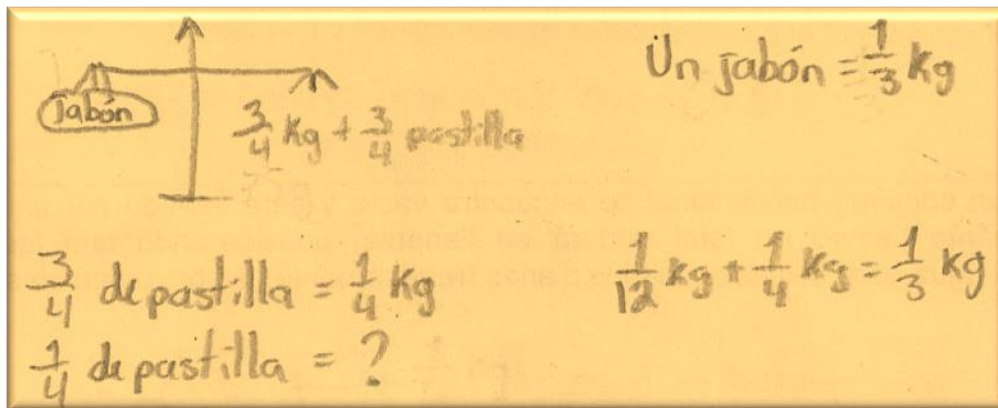 Jabón
3/4 Kg + 3/4 pastilla
Un jabón = 1/3 Kg
3/4 de pastilla = 1/4 Kg
1/4 de pastilla = ?
1/12 Kg + 1/4 Kg = 1/3 Kg